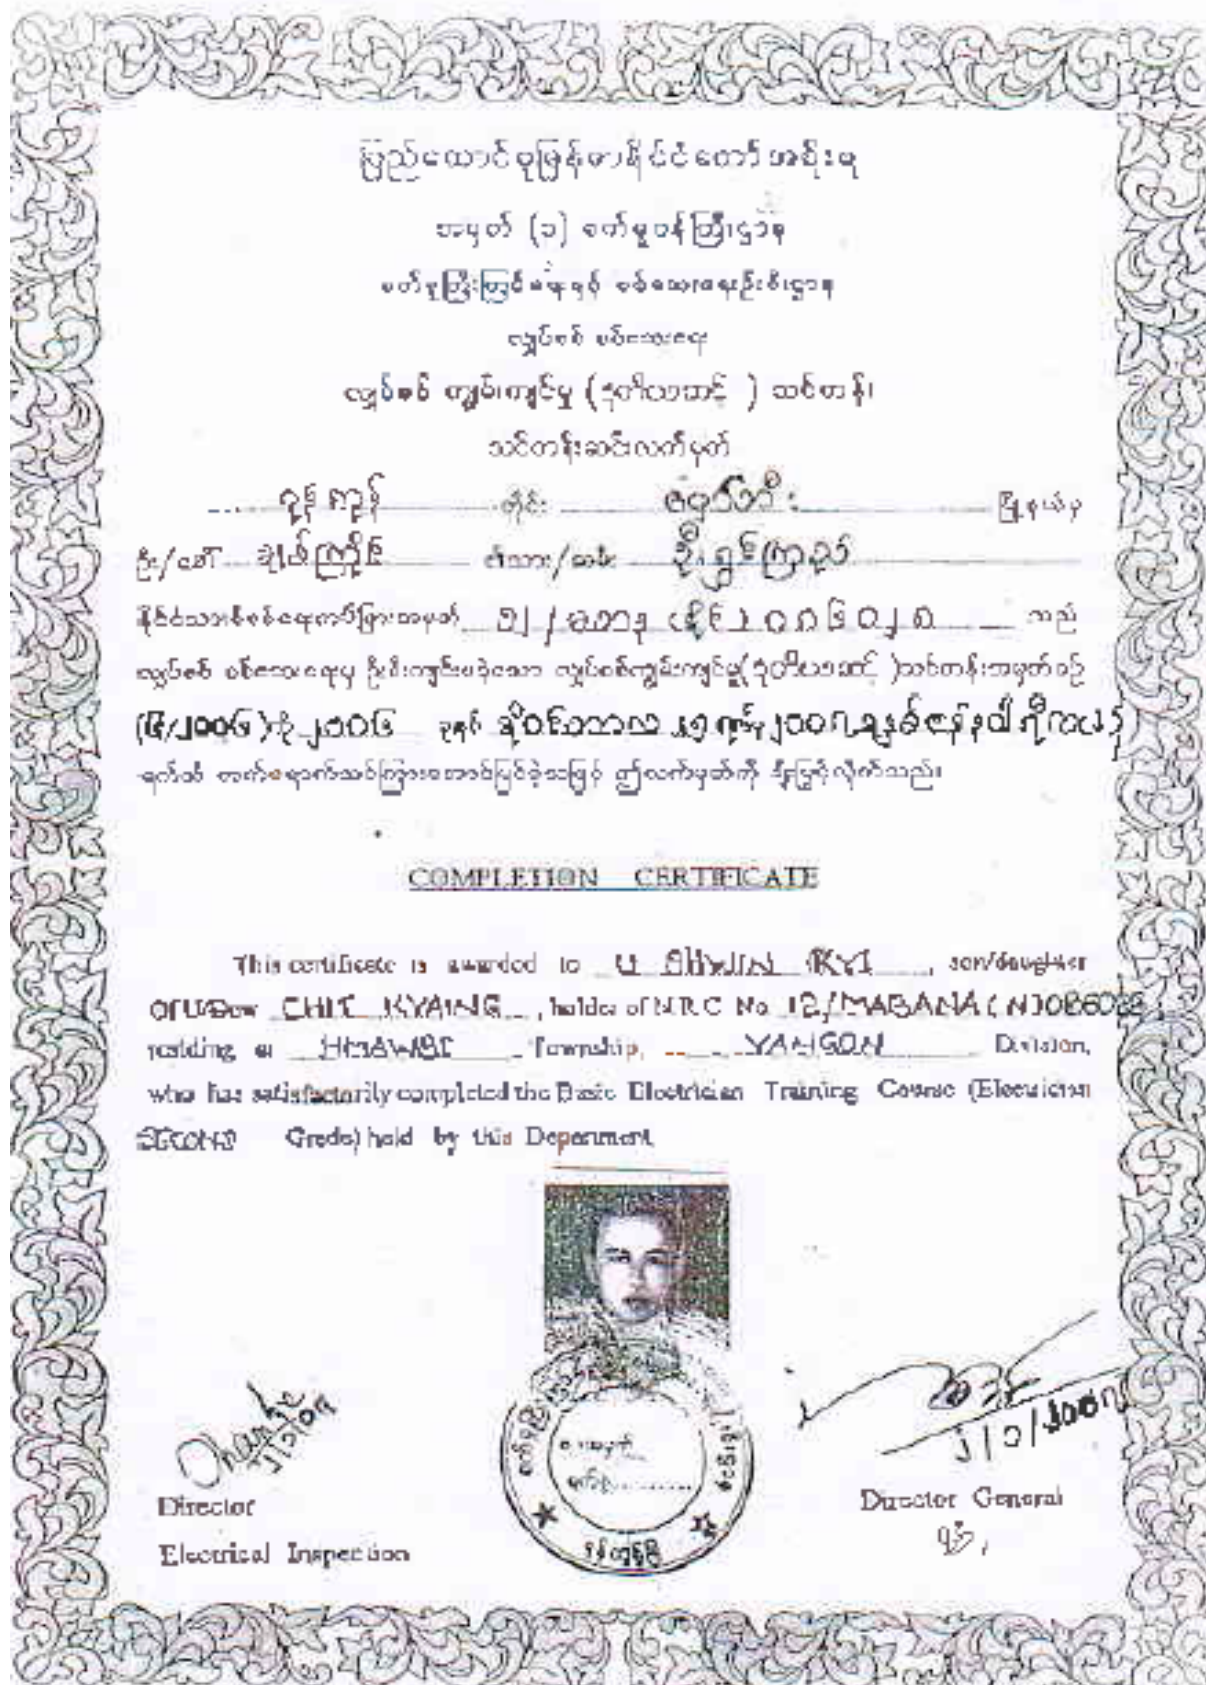 ပြည်ထောင်စုမြန်မာနိုင်ငံတော်အစိုးရ
အမှတ် (၁) စက်မှုဝန်ကြီးဌာန
စက်မှုကြီးကြပ်ရေးနှင့် စစ်ဆေးရေးဦးစီးဌာန
လျှပ်စစ် စစ်ဆေးရေး
လျှပ်စစ် ကျွမ်းကျင်မှု (ဒုတိယဆင့် ) သင်တန်း
သင်တန်းဆင်းလက်မှတ်
ရန်ကုန် တိုင်း မှော်ဘီ မြို့နယ်မှ
ဦး/ဒေါ် ၏သား/သမီး
နိုင်ငံသားစိစစ်ရေးကတ်ပြားအမှတ် ၁၂/ ၀၈၆၀၂၈ သည်
လျှပ်စစ် စစ်ဆေးရေးမှ ဦးစီးကျင်းပခဲ့သော လျှပ်စစ်ကျွမ်းကျင်မှု(ဒုတိယဆင့် )သင်တန်းအမှတ်စဉ်
(၆/၂၀၀၆)ကို ၂၀၀၆ ခုနှစ် ဒီဇင်ဘာလ ၂၀၀၇ ခုနှစ် ဇန်နဝါရီ
ရက်ထိ တက်ရောက်သင်ကြားအောင်မြင်ခဲ့သဖြင့် ဤလက်မှတ်ကို ချီးမြှင့်လိုက်သည်။
COMPLETION CERTIFICATE
This certificate is awarded to U SHWIN KYI , son/daughter
Of U/Daw CHIT KYAING , holder of N.R.C No 12/MABANA(N)086028
residing at HMAWBI Township, YANGON Division,
who has satisfactorily completed the Basic Electrician Training Course (Electrician
SECOND Grade) held by this Department
Director
Electrical Inspection
Director General